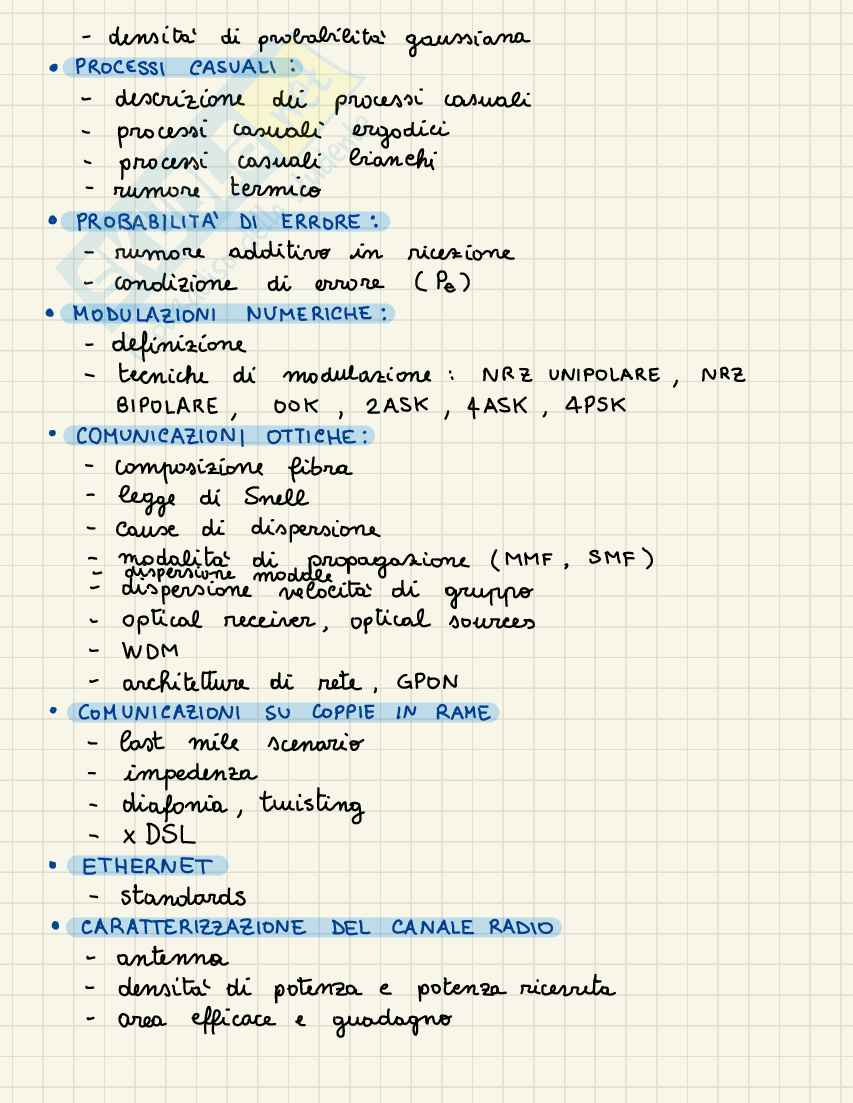 - densita' di probabilita' gaussiana
• PROCESSI CASUALI :
- descrizione dei processi casuali
- processi casuali ergodici
- processi casuali bianchi
- rumore termico
• PROBABILITA' DI ERRORE :
- rumore additivo in ricezione
- condizione di errore (Pe)
• MODULAZIONI NUMERICHE :
- definizione
- tecniche di modulazione : NRZ UNIPOLARE , NRZ
BIPOLARE , OOK , 2ASK , 4ASK , 4PSK
• COMUNICAZIONI OTTICHE :
- composizione fibra
- legge di Snell
- cause di dispersione
- modalita' di propagazione (MMF , SMF)
- dispersione modale
- dispersione velocita' di gruppo
- optical receiver, optical sources
- WDM
- architetture di rete , GPON
• COMUNICAZIONI SU COPPIE IN RAME
- last mile scenario
- impedenza
- diafonia , twisting
- x DSL
• ETHERNET
- standards
• CARATTERIZZAZIONE DEL CANALE RADIO
- antenna
- densita' di potenza e potenza ricevuta
- area efficace e guadagno